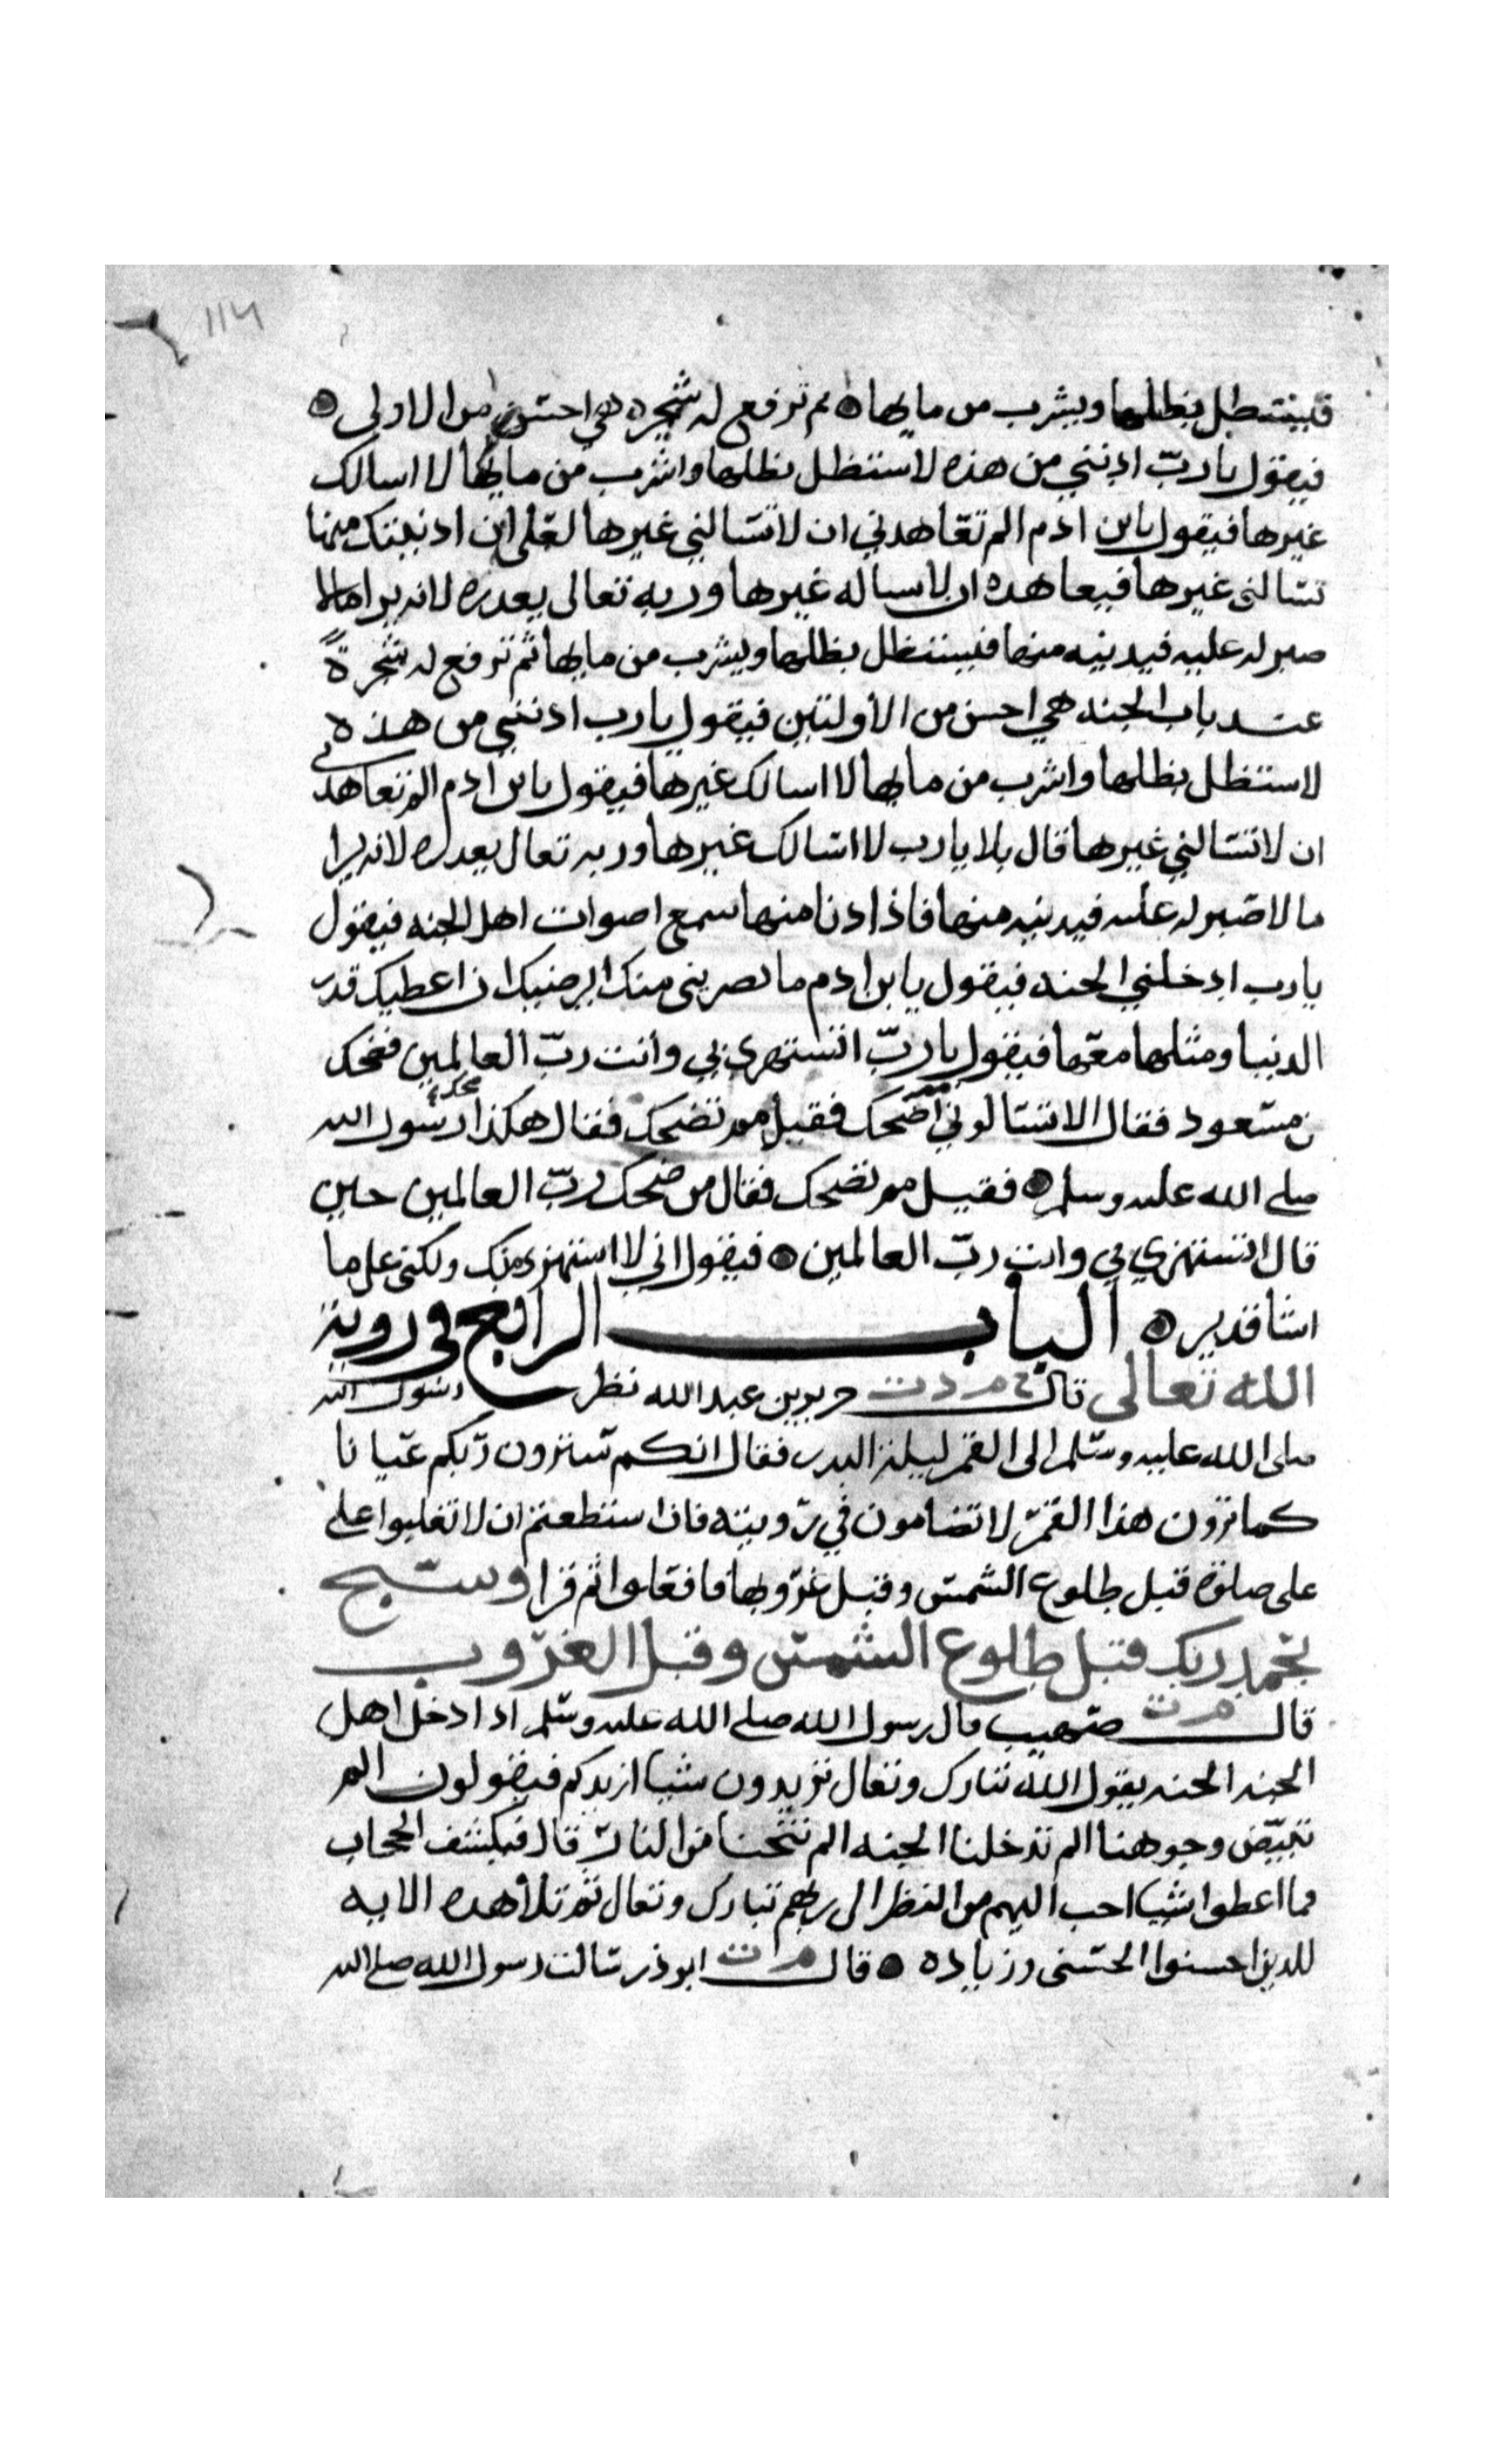 ١١٤
فيستظل بظلها ويشرب من مايها ۞ ثم ترفع له شجره هي احسن من الاولى ۞
فيقول يا ربّ ادنني من هذه لاستظل بظلها واشرب من مايها لا اسالك
غيرها فيقول يا بن ادم الم تعاهدني ان لا تسالني غيرها لعلي ان ادنيتك منها
تسالني غيرها فيعاهده ان لا يساله غيرها وربه تعالى يعذره لانه يرا مالا
صبر له عليه فيدنيه منها فيستظل بظلها ويشرب من مايها ثم ترفع له شجرةً
عند باب الجنه هي احسن من الأولتين فيقول يا رب ادنني من هذه
لاستظل بظلها واشرب من مايها لا اسالك غيرها فيقول يا بن ادم الم تعاهدني
ان لا تسالني غيرها قال بلا يا رب لا اسالك غيرها وربه تعالى يعذره لانه يرا
ما لا صبر له عليه فيدنيه منها فاذا دنا منها سمع اصوات اهل الجنه فيقول
يا رب ادخلني الجنه فيقول يا بن ادم ما يصريني منك ايرضيك ان اعطيك قدر
الدنيا ومثلها معها فيقول يا ربّ اتستهزي بي وأنت ربّ العالمين فضحك
بن مسعود فقال الا تسالوني مم اضحك فقيل مم تضحك فقال هكذا ضحك رسول الله
صلى الله عليه وسلم ۞ فقيل مم تضحك فقال من ضحك ربّ العالمين حين
قال اتستهزي بي وانت ربّ العالمين ۞ فيقول اني لا استهزي منك ولكني على ما
اشا قدير ۞ الباب الرابع في روية
الله تعالى قال خ م د ت جرير بن عبد الله نظر رسول الله
صلى الله عليه وسلم الى القمر ليلة البدر فقال انكم سترون ربّكم عيانا
كما ترون هذا القمر لا تضامون في رويته فان استطعتم ان لا تغلبوا على
على صلوة قبل طلوع الشمس وقبل غروبها فافعلوا ثم قرا وسبح
بحمد ربك قبل طلوع الشمس وقبل الغروب
قال م ت صهيب قال رسول الله صلى الله عليه وسلم اذا دخل اهل
الجنه الجنه يقول الله تبارك وتعالى تريدون شيا ازيدكم فيقولون الم
تبيّض وجوهنا الم تدخلنا الجنه الم تنجنا من النار قال فيكشف الحجاب
فما اعطوا شيا احب اليهم من النظر الى ربهم تبارك وتعالى ثم تلا هذه الايه
للذين احسنوا الحسنى وزياده ۞ قال م ت ابو ذر سالت رسول الله صلى الله